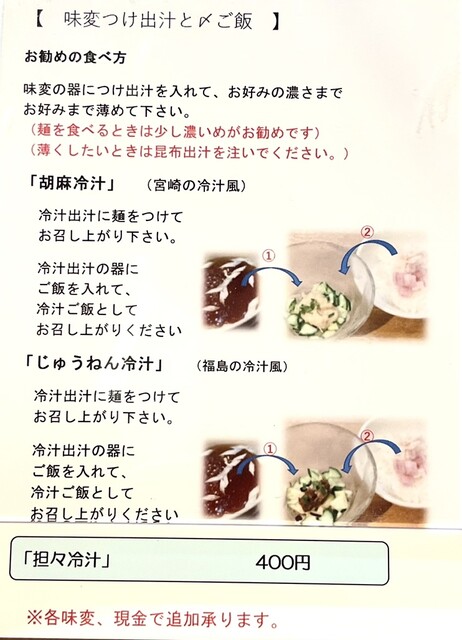 【 味変つけ出汁と〆ご飯 】
お勧めの食べ方
味変の器につけ出汁を入れて、お好みの濃さまで
お好みまで薄めて下さい。
（麺を食べるときは少し濃いめがお勧めです）
（薄くしたいときは昆布出汁を注いでください。）
「胡麻冷汁」 （宮崎の冷汁風）
冷汁出汁に麺をつけて
お召し上がり下さい。
冷汁出汁の器に
ご飯を入れて、
冷汁ご飯として
お召し上がりください
① ②
「じゅうねん冷汁」 （福島の冷汁風）
冷汁出汁に麺をつけて
お召し上がり下さい。
冷汁出汁の器に
ご飯を入れて、
冷汁ご飯として
お召し上がりください
① ②
「担々冷汁」 400円
※各味変、現金で追加承ります。